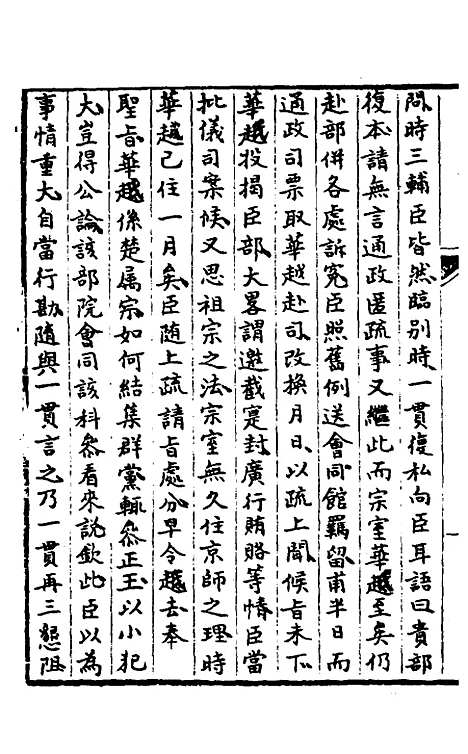 問時三輔臣皆然臨別時一貫復私向臣耳語曰貴部
復本請無言通政匿疏事又繼此而宗室華越至矣仍
赴部併各處訴冤臣照舊例送會同館羈留甫半日而
通政司票取華越赴司改換月日以疏上聞候旨未下
華越投揭臣部大畧謂邀截寔封廣行賄賂等情臣當
批儀司案候又思祖宗之法宗室無久住京師之理時
華越已住一月矣臣隨上疏請旨處分早令越去奉
聖旨華越係楚属宗如何結集群黨輒叅正王以小犯
大豈得公論該部院會同該科叅看來說欽此臣以為
事情重大自當行勘随與一貫言之乃一貫再三懇阻